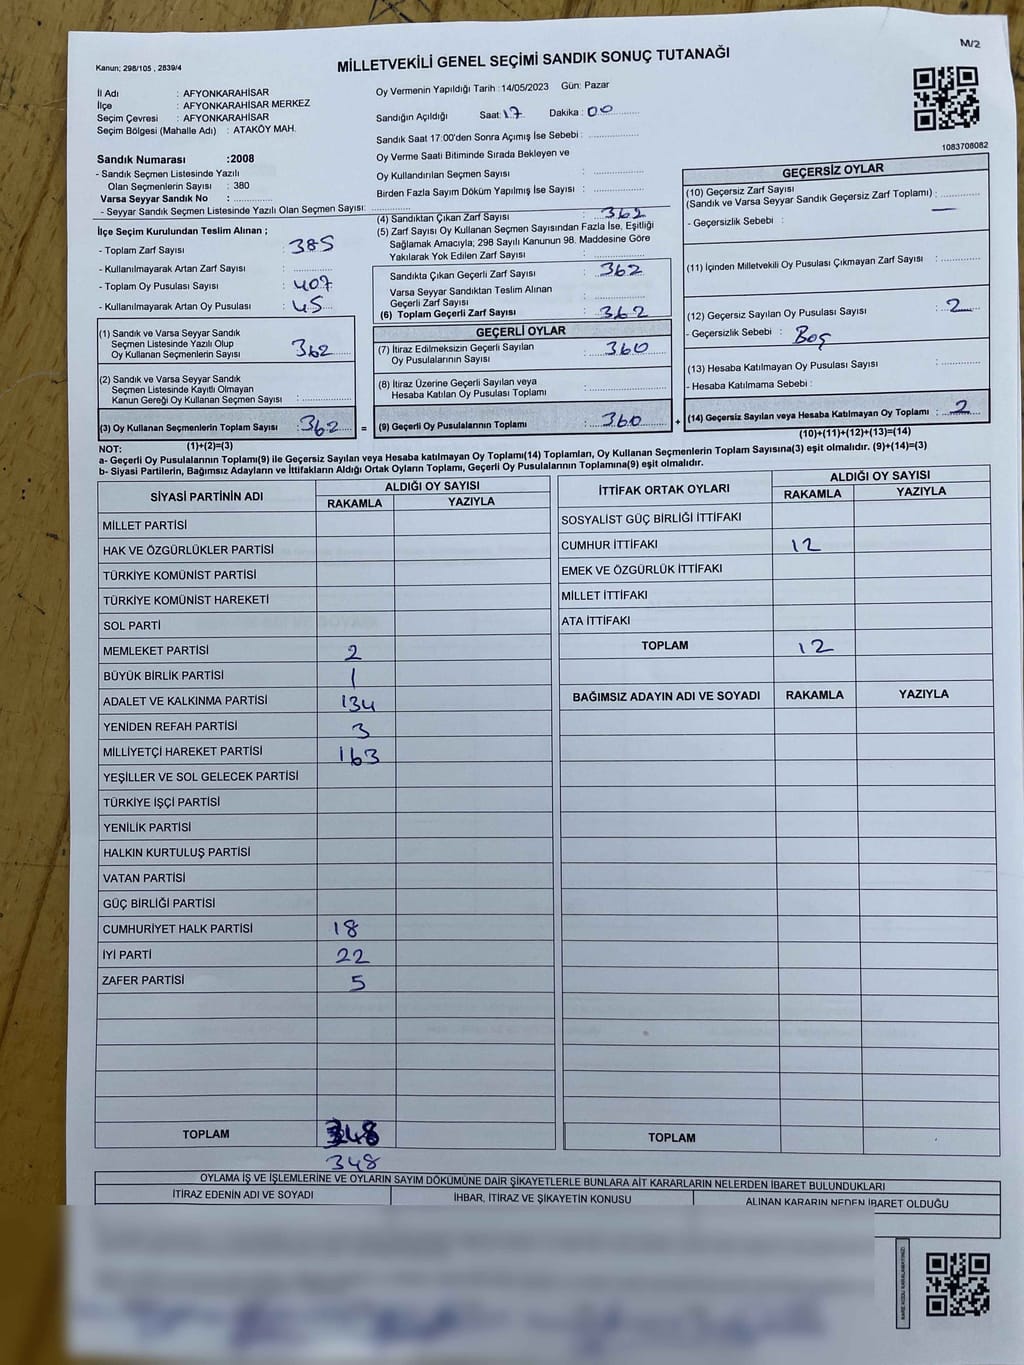 M/2
Kanun; 298/105 , 2839/4
MİLLETVEKİLİ GENEL SEÇİMİ SANDIK SONUÇ TUTANAĞI
İl Adı : AFYONKARAHİSAR
İlçe : AFYONKARAHİSAR MERKEZ
Seçim Çevresi : AFYONKARAHİSAR
Seçim Bölgesi (Mahalle Adı) : ATAKÖY MAH.
Oy Vermenin Yapıldığı Tarih : 14/05/2023 Gün: Pazar
Sandığın Açıldığı Saat: 17 Dakika : 00
Sandık Saat 17:00'den Sonra Açımış İse Sebebi :
Oy Verme Saati Bitiminde Sırada Bekleyen ve
Oy Kullandırılan Seçmen Sayısı :
Birden Fazla Sayım Döküm Yapılmış İse Sayısı :
1083708082
Sandık Numarası :2008
- Sandık Seçmen Listesinde Yazılı
Olan Seçmenlerin Sayısı : 380
Varsa Seyyar Sandık No :
- Seyyar Sandık Seçmen Listesinde Yazılı Olan Seçmen Sayısı:
İlçe Seçim Kurulundan Teslim Alınan ;
- Toplam Zarf Sayısı : 385
- Kullanılmayarak Artan Zarf Sayısı :
- Toplam Oy Pusulası Sayısı : 407
- Kullanılmayarak Artan Oy Pusulası : 45
(1) Sandık ve Varsa Seyyar Sandık
Seçmen Listesinde Yazılı Olup
Oy Kullanan Seçmenlerin Sayısı : 362
(2) Sandık ve Varsa Seyyar Sandık
Seçmen Listesinde Kayıtlı Olmayan
Kanun Gereği Oy Kullanan Seçmen Sayısı :
(3) Oy Kullanan Seçmenlerin Toplam Sayısı : 362 =
(1)+(2)=(3)
(4) Sandıktan Çıkan Zarf Sayısı : 362
(5) Zarf Sayısı Oy Kullanan Seçmen Sayısından Fazla İse, Eşitliği
Sağlamak Amacıyla; 298 Sayılı Kanunun 98. Maddesine Göre
Yakılarak Yok Edilen Zarf Sayısı :
Sandıkta Çıkan Geçerli Zarf Sayısı : 362
Varsa Seyyar Sandıktan Teslim Alınan
Geçerli Zarf Sayısı :
(6) Toplam Geçerli Zarf Sayısı : 362
GEÇERLİ OYLAR
(7) İtiraz Edilmeksizin Geçerli Sayılan
Oy Pusulalarının Sayısı : 360
(8) İtiraz Üzerine Geçerli Sayılan veya
Hesaba Katılan Oy Pusulası Toplamı :
(9) Geçerli Oy Pusulalarının Toplamı : 360 +
GEÇERSİZ OYLAR
(10) Geçersiz Zarf Sayısı
(Sandık ve Varsa Seyyar Sandık Geçersiz Zarf Toplamı) : —
- Geçersizlik Sebebi :
(11) İçinden Milletvekili Oy Pusulası Çıkmayan Zarf Sayısı :
(12) Geçersiz Sayılan Oy Pusulası Sayısı : 2
- Geçersizlik Sebebi : Boş
(13) Hesaba Katılmayan Oy Pusulası Sayısı :
- Hesaba Katılmama Sebebi :
(14) Geçersiz Sayılan veya Hesaba Katılmayan Oy Toplamı : 2
(10)+(11)+(12)+(13)=(14)
NOT:
a- Geçerli Oy Pusulalarının Toplamı(9) ile Geçersiz Sayılan veya Hesaba katılmayan Oy Toplamı(14) Toplamları, Oy Kullanan Seçmenlerin Toplam Sayısına(3) eşit olmalıdır. (9)+(14)=(3)
b- Siyasi Partilerin, Bağımsız Adayların ve İttifakların Aldığı Ortak Oyların Toplamı, Geçerli Oy Pusulalarının Toplamına(9) eşit olmalıdır.
SİYASİ PARTİNİN ADI ALDIĞI OY SAYISI
RAKAMLA YAZIYLA
MİLLET PARTİSİ
HAK VE ÖZGÜRLÜKLER PARTİSİ
TÜRKİYE KOMÜNİST PARTİSİ
TÜRKİYE KOMÜNİST HAREKETİ
SOL PARTİ
MEMLEKET PARTİSİ 2
BÜYÜK BİRLİK PARTİSİ 1
ADALET VE KALKINMA PARTİSİ 134
YENİDEN REFAH PARTİSİ 3
MİLLİYETÇİ HAREKET PARTİSİ 163
YEŞİLLER VE SOL GELECEK PARTİSİ
TÜRKİYE İŞÇİ PARTİSİ
YENİLİK PARTİSİ
HALKIN KURTULUŞ PARTİSİ
VATAN PARTİSİ
GÜÇ BİRLİĞİ PARTİSİ
CUMHURİYET HALK PARTİSİ 18
İYİ PARTİ 22
ZAFER PARTİSİ 5
TOPLAM 348
348
İTTİFAK ORTAK OYLARI ALDIĞI OY SAYISI
RAKAMLA YAZIYLA
SOSYALİST GÜÇ BİRLİĞİ İTTİFAKI
CUMHUR İTTİFAKI 12
EMEK VE ÖZGÜRLÜK İTTİFAKI
MİLLET İTTİFAKI
ATA İTTİFAKI
TOPLAM 12
BAĞIMSIZ ADAYIN ADI VE SOYADI RAKAMLA YAZIYLA
TOPLAM
OYLAMA İŞ VE İŞLEMLERİNE VE OYLARIN SAYIM DÖKÜMÜNE DAİR ŞİKAYETLERLE BUNLARA AİT KARARLARIN NELERDEN İBARET BULUNDUKLARI
İTİRAZ EDENİN ADI VE SOYADI İHBAR, İTİRAZ VE ŞİKAYETİN KONUSU ALINAN KARARIN NEDEN İBARET OLDUĞU